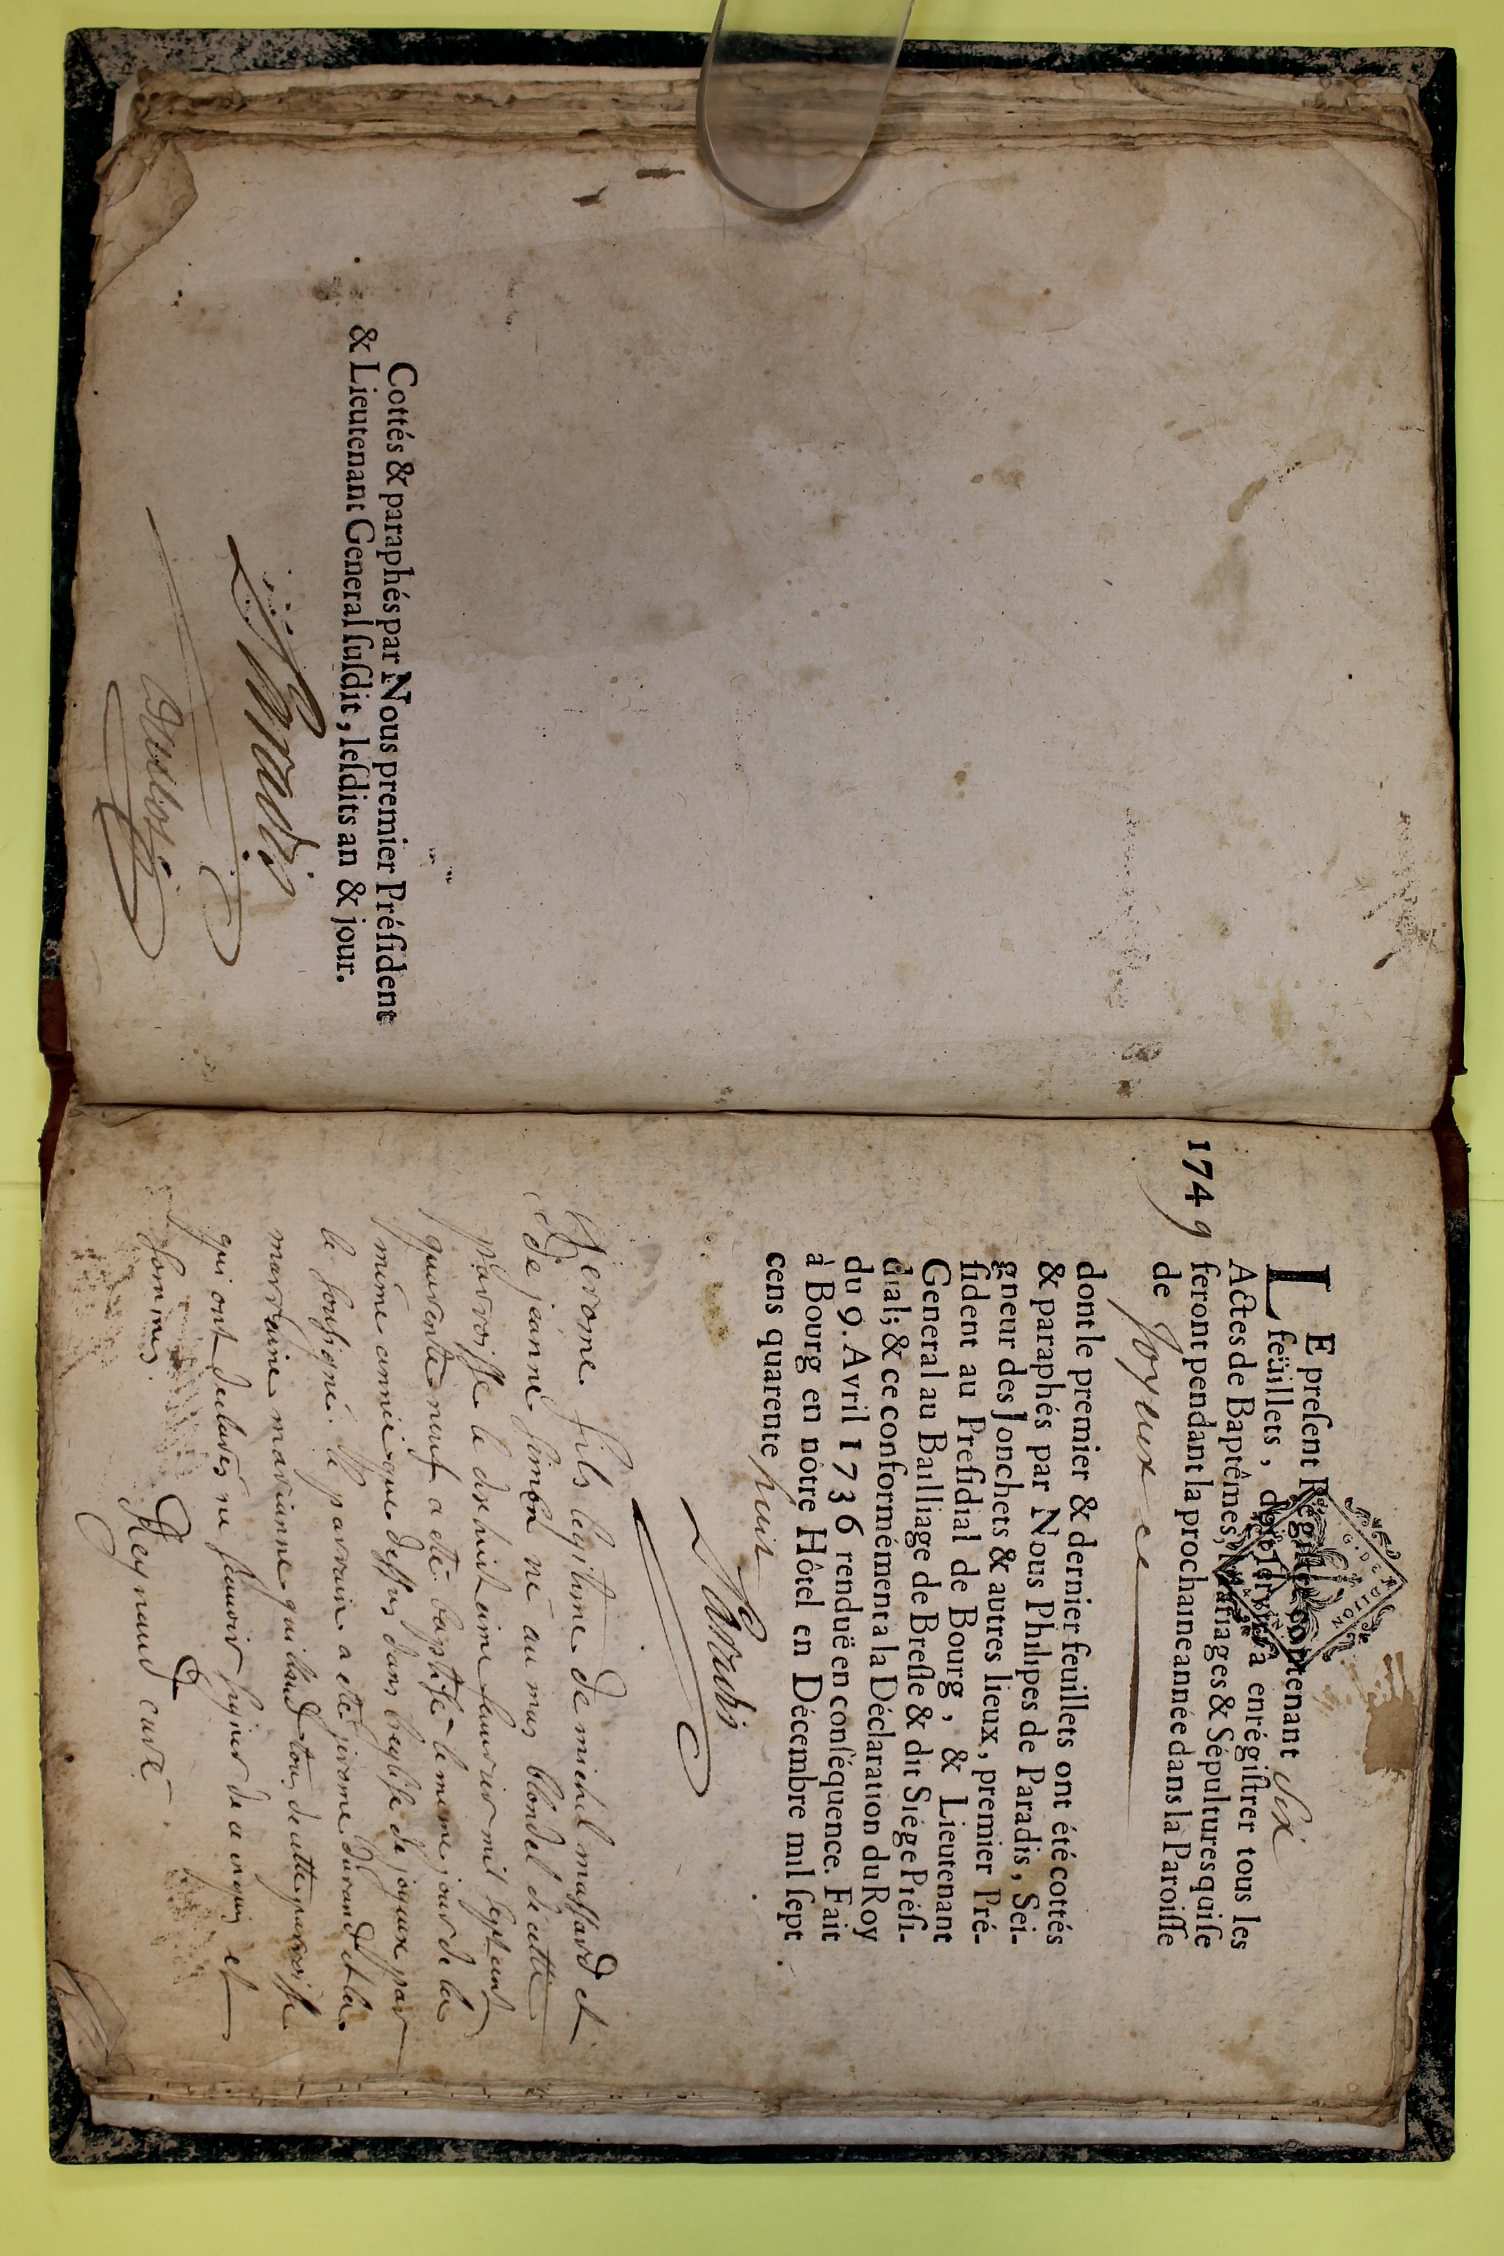 Cottés & paraphés par Nous premier Préſident
& Lieutenant General ſuſdit, leſdits an & jour.
Paradis
1749
LE preſent Regiſtre contenant Six
feüillets, doit ſervir à enrégiſtrer tous les
Actes de Baptêmes, Mariages & Sépultures qui ſe
feront pendant la prochaine année dans la Paroiſſe
de Joyeux ce
dont le premier & dernier feuillets ont été cottés
& paraphés par Nous Philipes de Paradis, Sei-
gneur des Jonchets & autres lieux, premier Pré-
ſident au Preſidial de Bourg, & Lieutenant
General au Bailliage de Breſſe & dit Siége Préſi-
dial; & ce conformément a la Déclaration du Roy
du 9. Avril 1736 renduë en conſéquence. Fait
à Bourg en nôtre Hôtel en Décembre mil ſept
cens quarente huit
Paradis
Jerome fils legitime de michel massard et
de jeanne Simon né au mas blondel de cette
parroisse le dix huitieme janvier mil sept cent
quarente neuf a été baptisé le meme jour de la
même année que dessus dans l'eglise de joyeux par
le soussigné. le parrain a eté jerome durand et la
marraine marianne quiblaud tous de cette parroisse
qui ont declarés ne scavoir signer de ce enquis et
sommés.
Reynaud curé